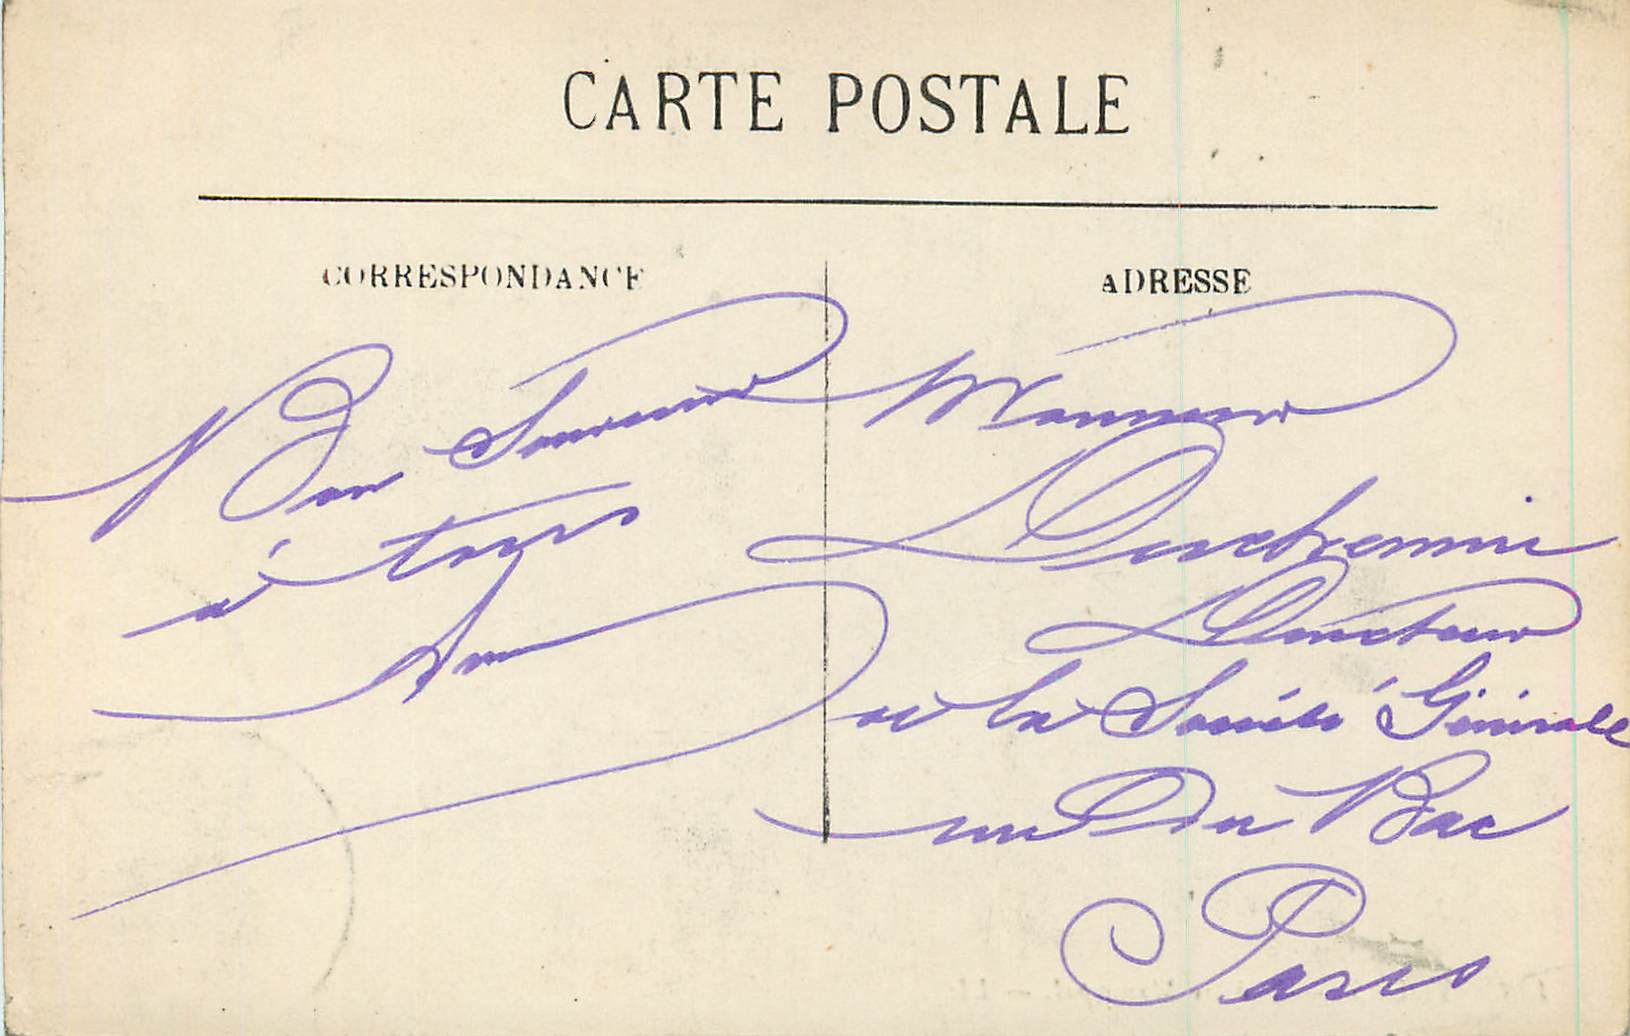 CARTE POSTALE
CORRESPONDANCE
ADRESSE
Bon Souvenir
à tous
Monsieur
Duchemin
Directeur
de la Société Générale
rue Du Bac
Paris